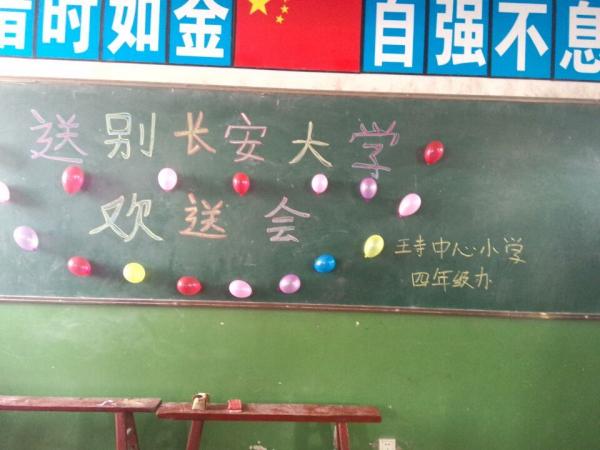 惜时如金
自强不息
送别长安大学
欢送会
王寺中心小学
四年级办